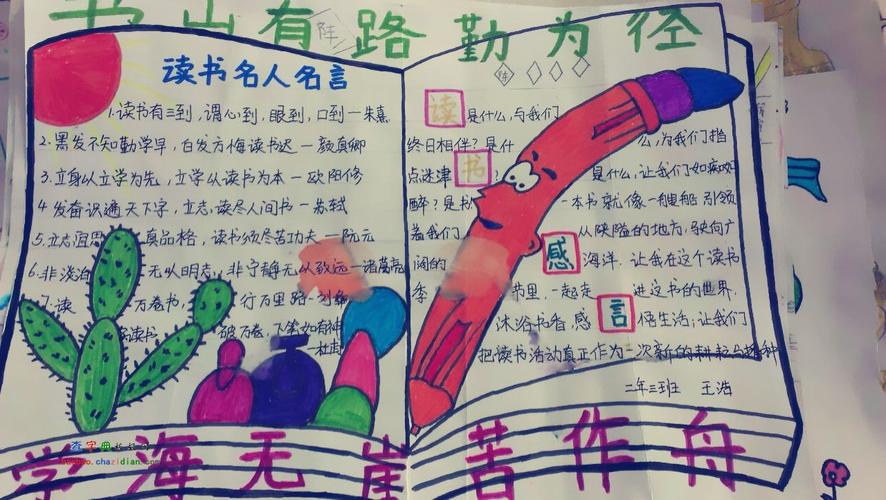 书山有路勤为径
读书名人名言
1.读书有三到，谓心到，眼到，口到—朱熹
2.黑发不知勤学早，白发方悔读书迟—颜真卿
3.立身以立学为先，立学以读书为本—欧阳修
4 发奋识遍天下字，立志读尽人间书—苏轼
5.立志宜思真品格，读书须尽苦功夫—阮元
6.非淡泊无以明志，非宁静无以致远—诸葛亮
7.读万卷书，行万里路—刘
读书破万卷，下笔如有神
—杜甫
读是什么，与我们
终日相伴？是什么，为我们指
点迷津书？是什么，让我们如痴如
醉？是书一本书就像一艘船 引领
着我们从狭隘的地方，驶向广
阔的感海洋，让我在这个读书
季节里，一起走进这书的世界.
沐浴书香，感言悟生活；让我们
把读书活动真正作为一次新的耕耘与播种
二年三班 王浩
学海无崖苦作舟
查字典
chazidian.com